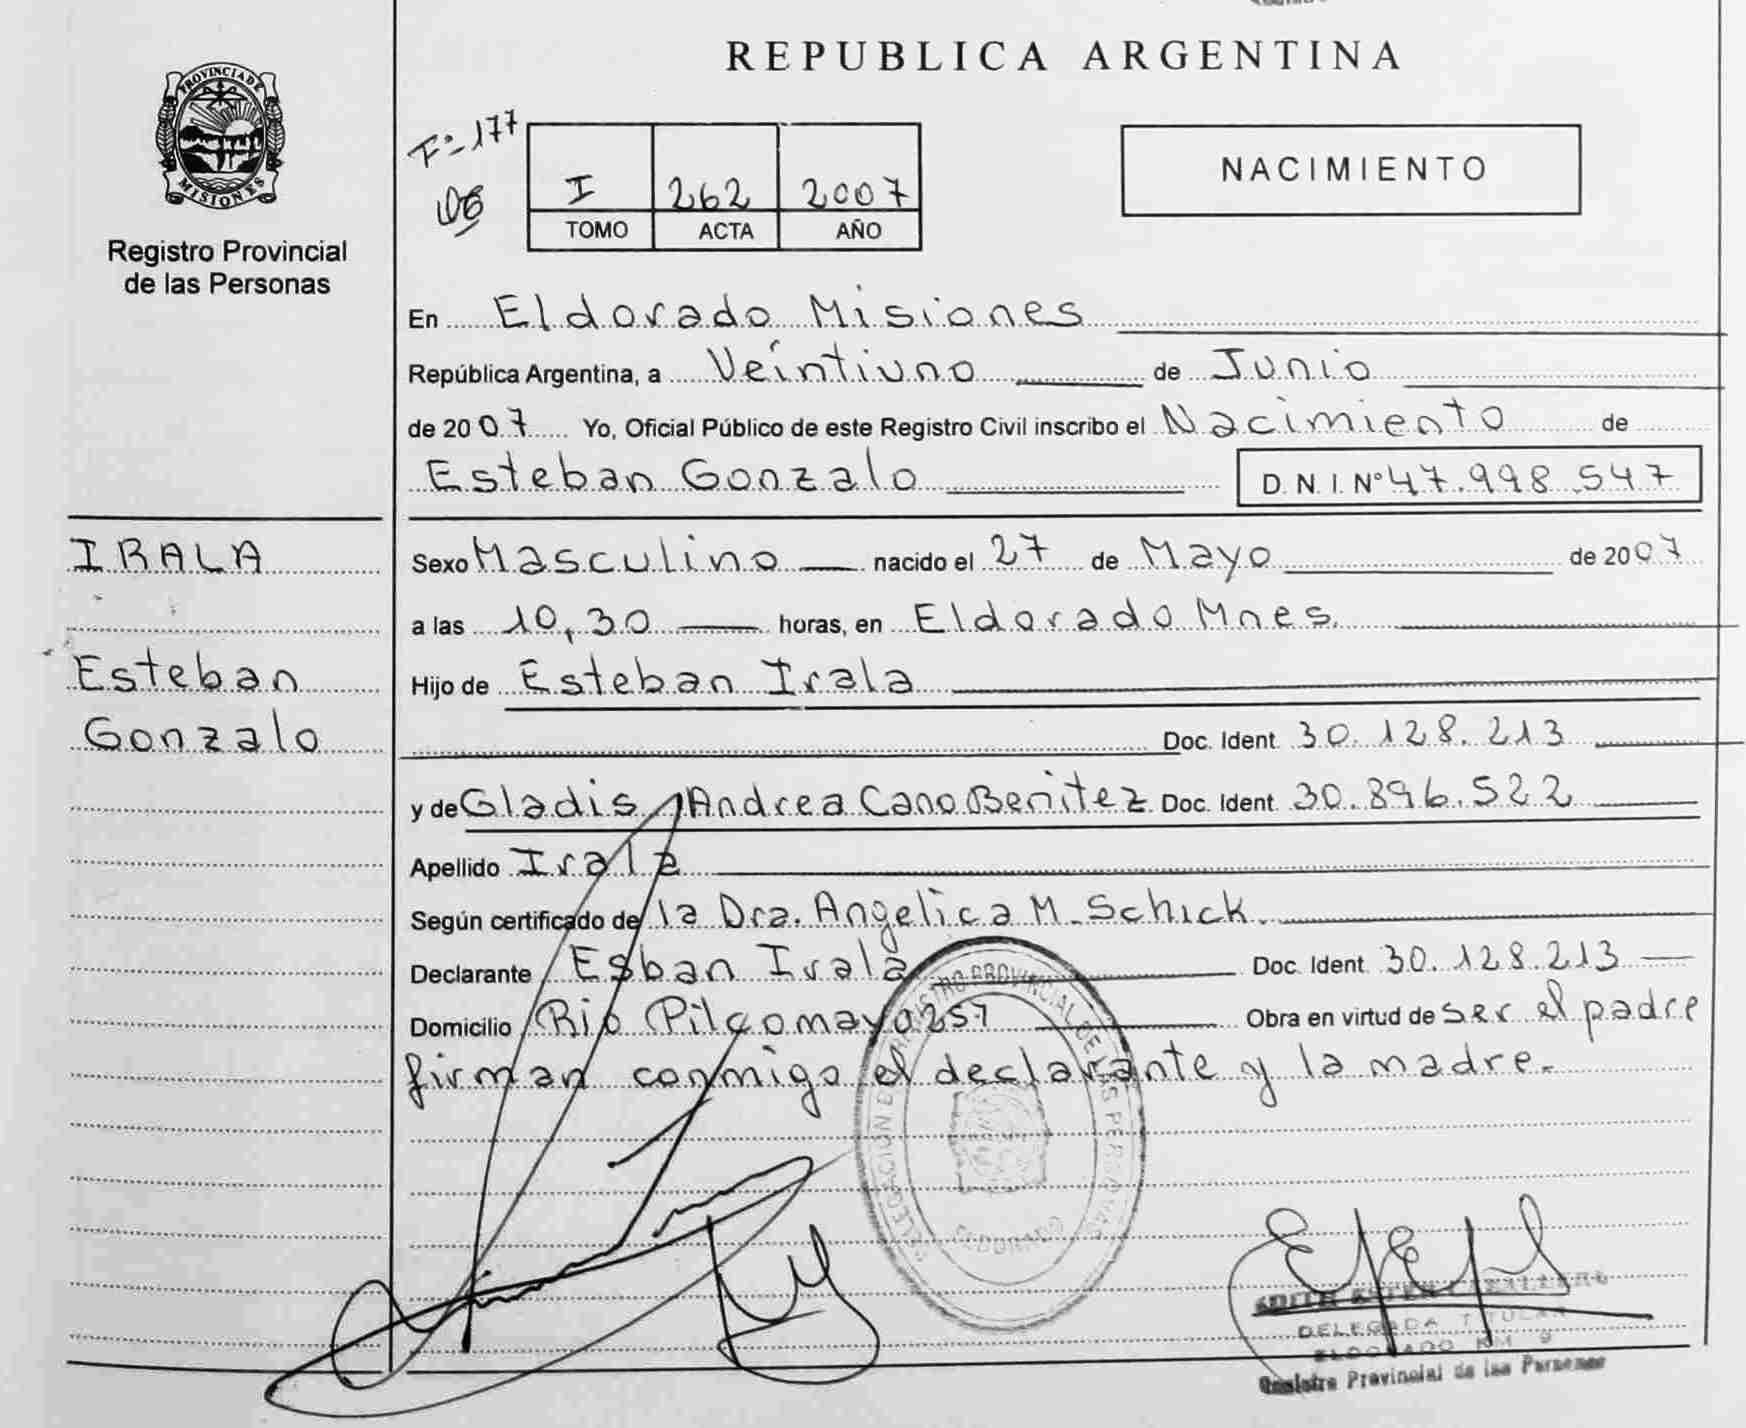 REPUBLICA ARGENTINA
PROVINCIA DE
MISIONES
Registro Provincial
de las Personas
Fº 177
I 262 2007
TOMO ACTA AÑO
NACIMIENTO
En Eldorado Misiones
República Argentina, a Veintiuno de Junio
de 2007 Yo, Oficial Público de este Registro Civil inscribo el Nacimiento de
Esteban Gonzalo D.N.I. Nº 47.998.547
IRALA
Sexo Masculino nacido el 27 de Mayo de 2007
a las 10,30 horas, en Eldorado Mnes.
Esteban
Hijo de Esteban Irala
Gonzalo
Doc. Ident. 30.128.213
y de Gladis Andrea Cano Benitez Doc. Ident. 30.896.522
Apellido Irala
Según certificado de la Dra. Angelica M. Schick.
Declarante Esban Irala Doc. Ident. 30.128.213
Domicilio Rio Pilcomayo 257 Obra en virtud de ser el padre
firman conmigo el declarante y la madre.
DELEGACION DEL REGISTRO PROVINCIAL DE LAS PERSONAS
ELDORADO
EDITH ESTER
DELEGADA TITULAR
ELDORADO KM 9
Registro Provincial de las Personas